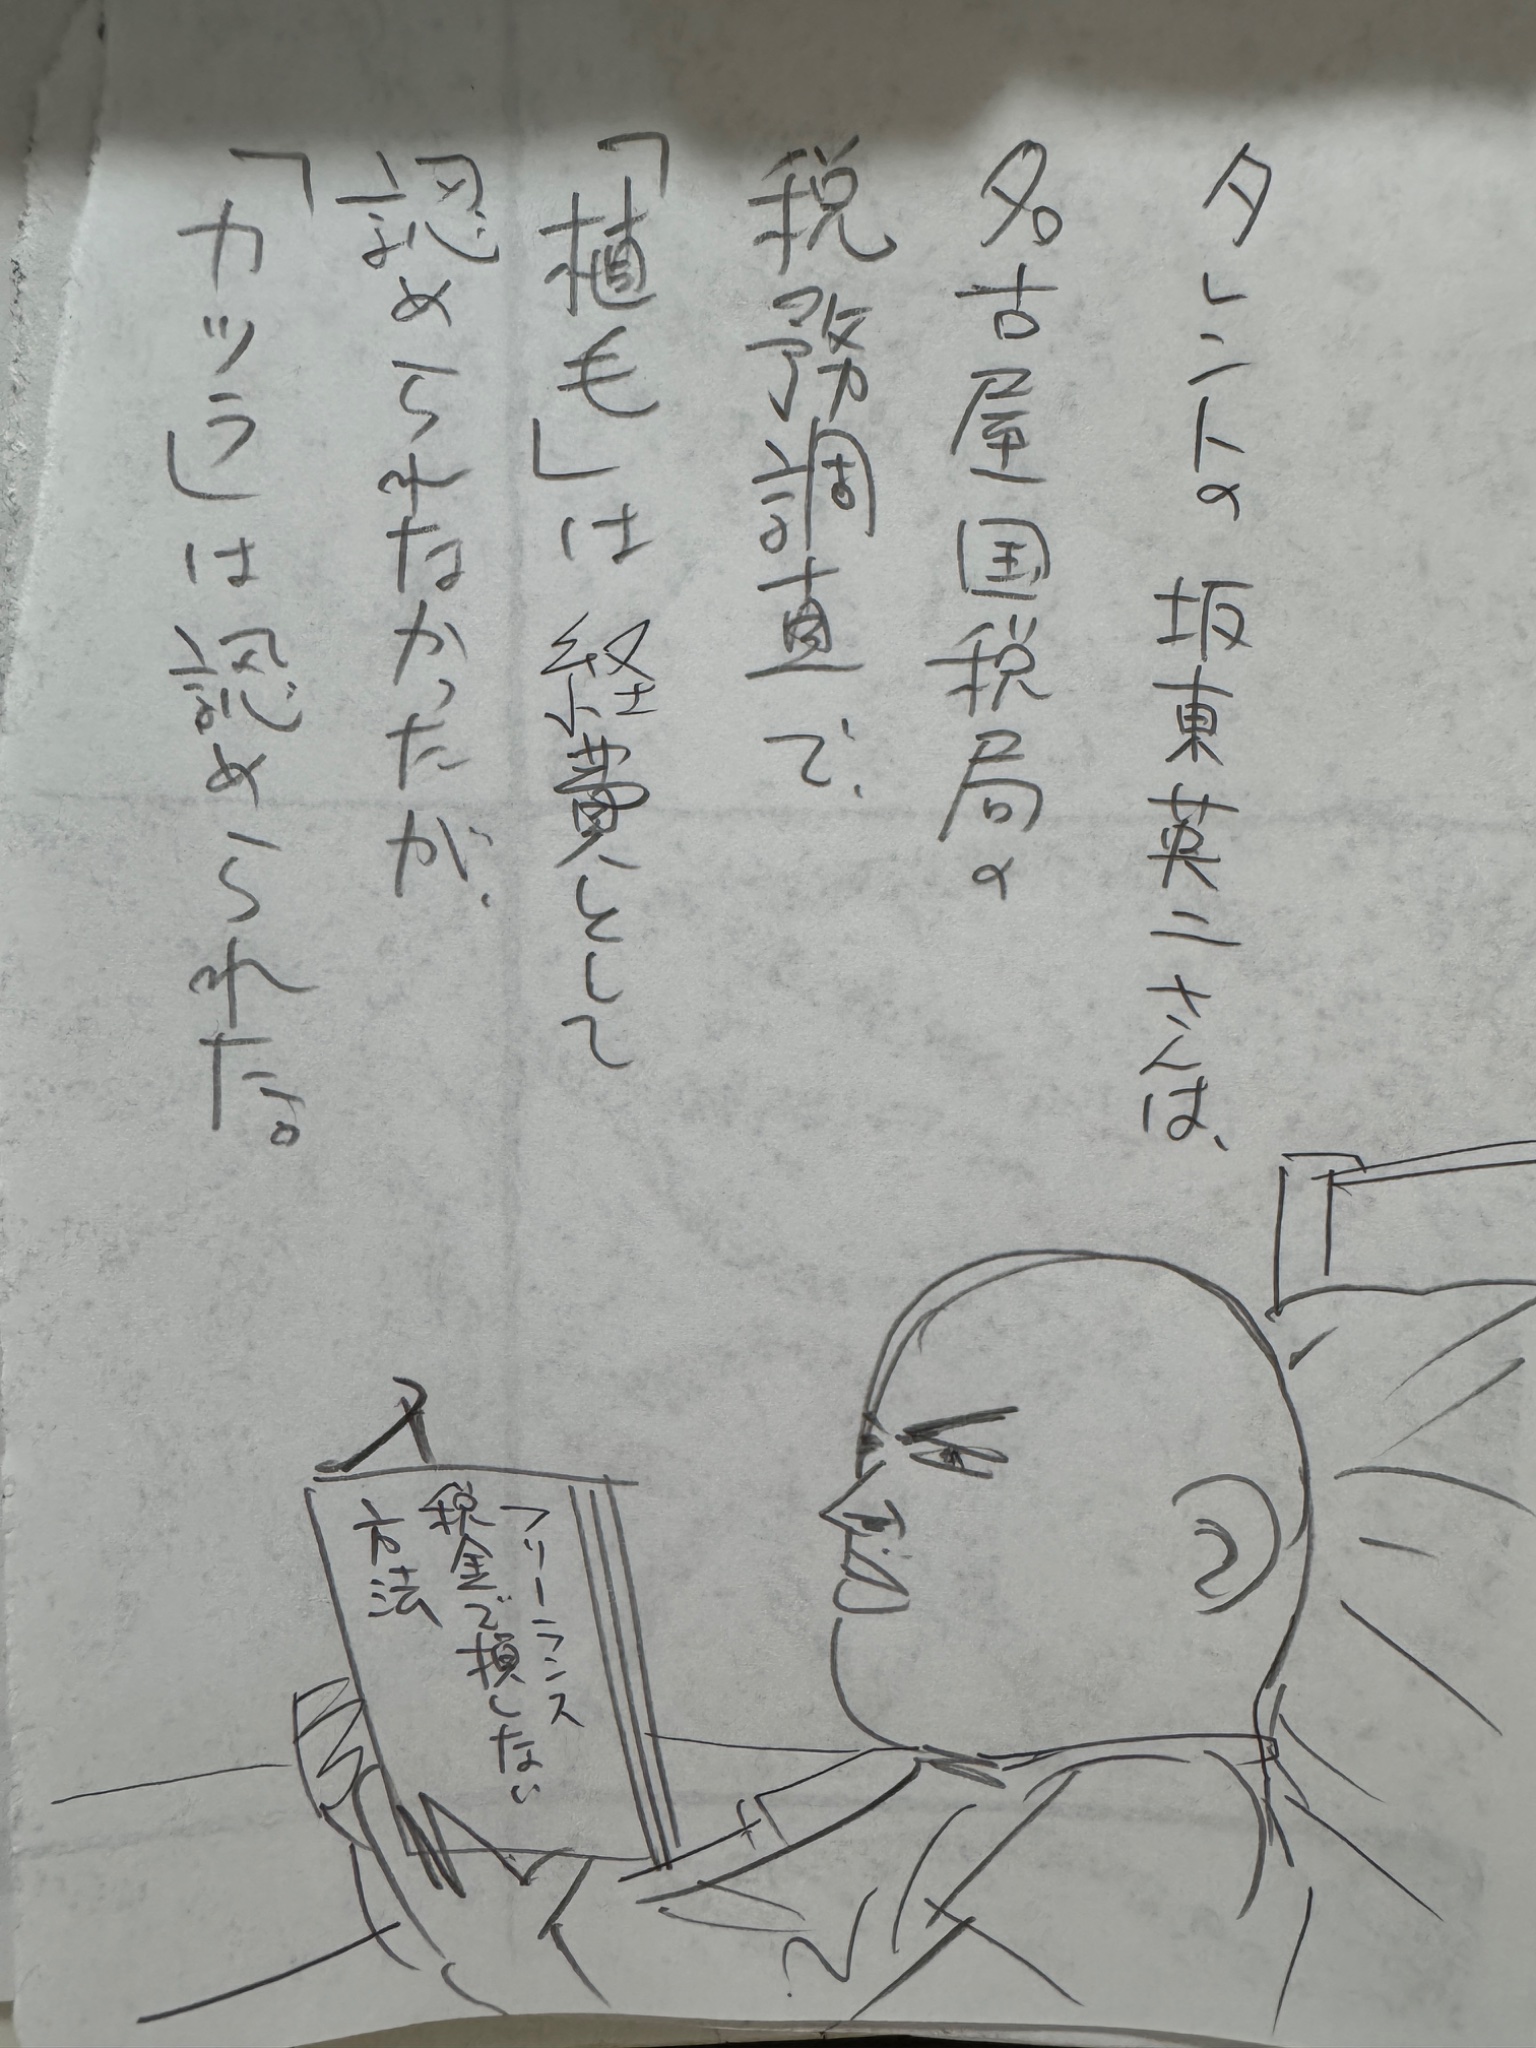 タレントの 坂東英二さんは、
名古屋国税局の
税務調査で、
「植毛」は経費として
認められなかったが、
「カツラ」は認められた。
フリーランス
税金で損しない
方法